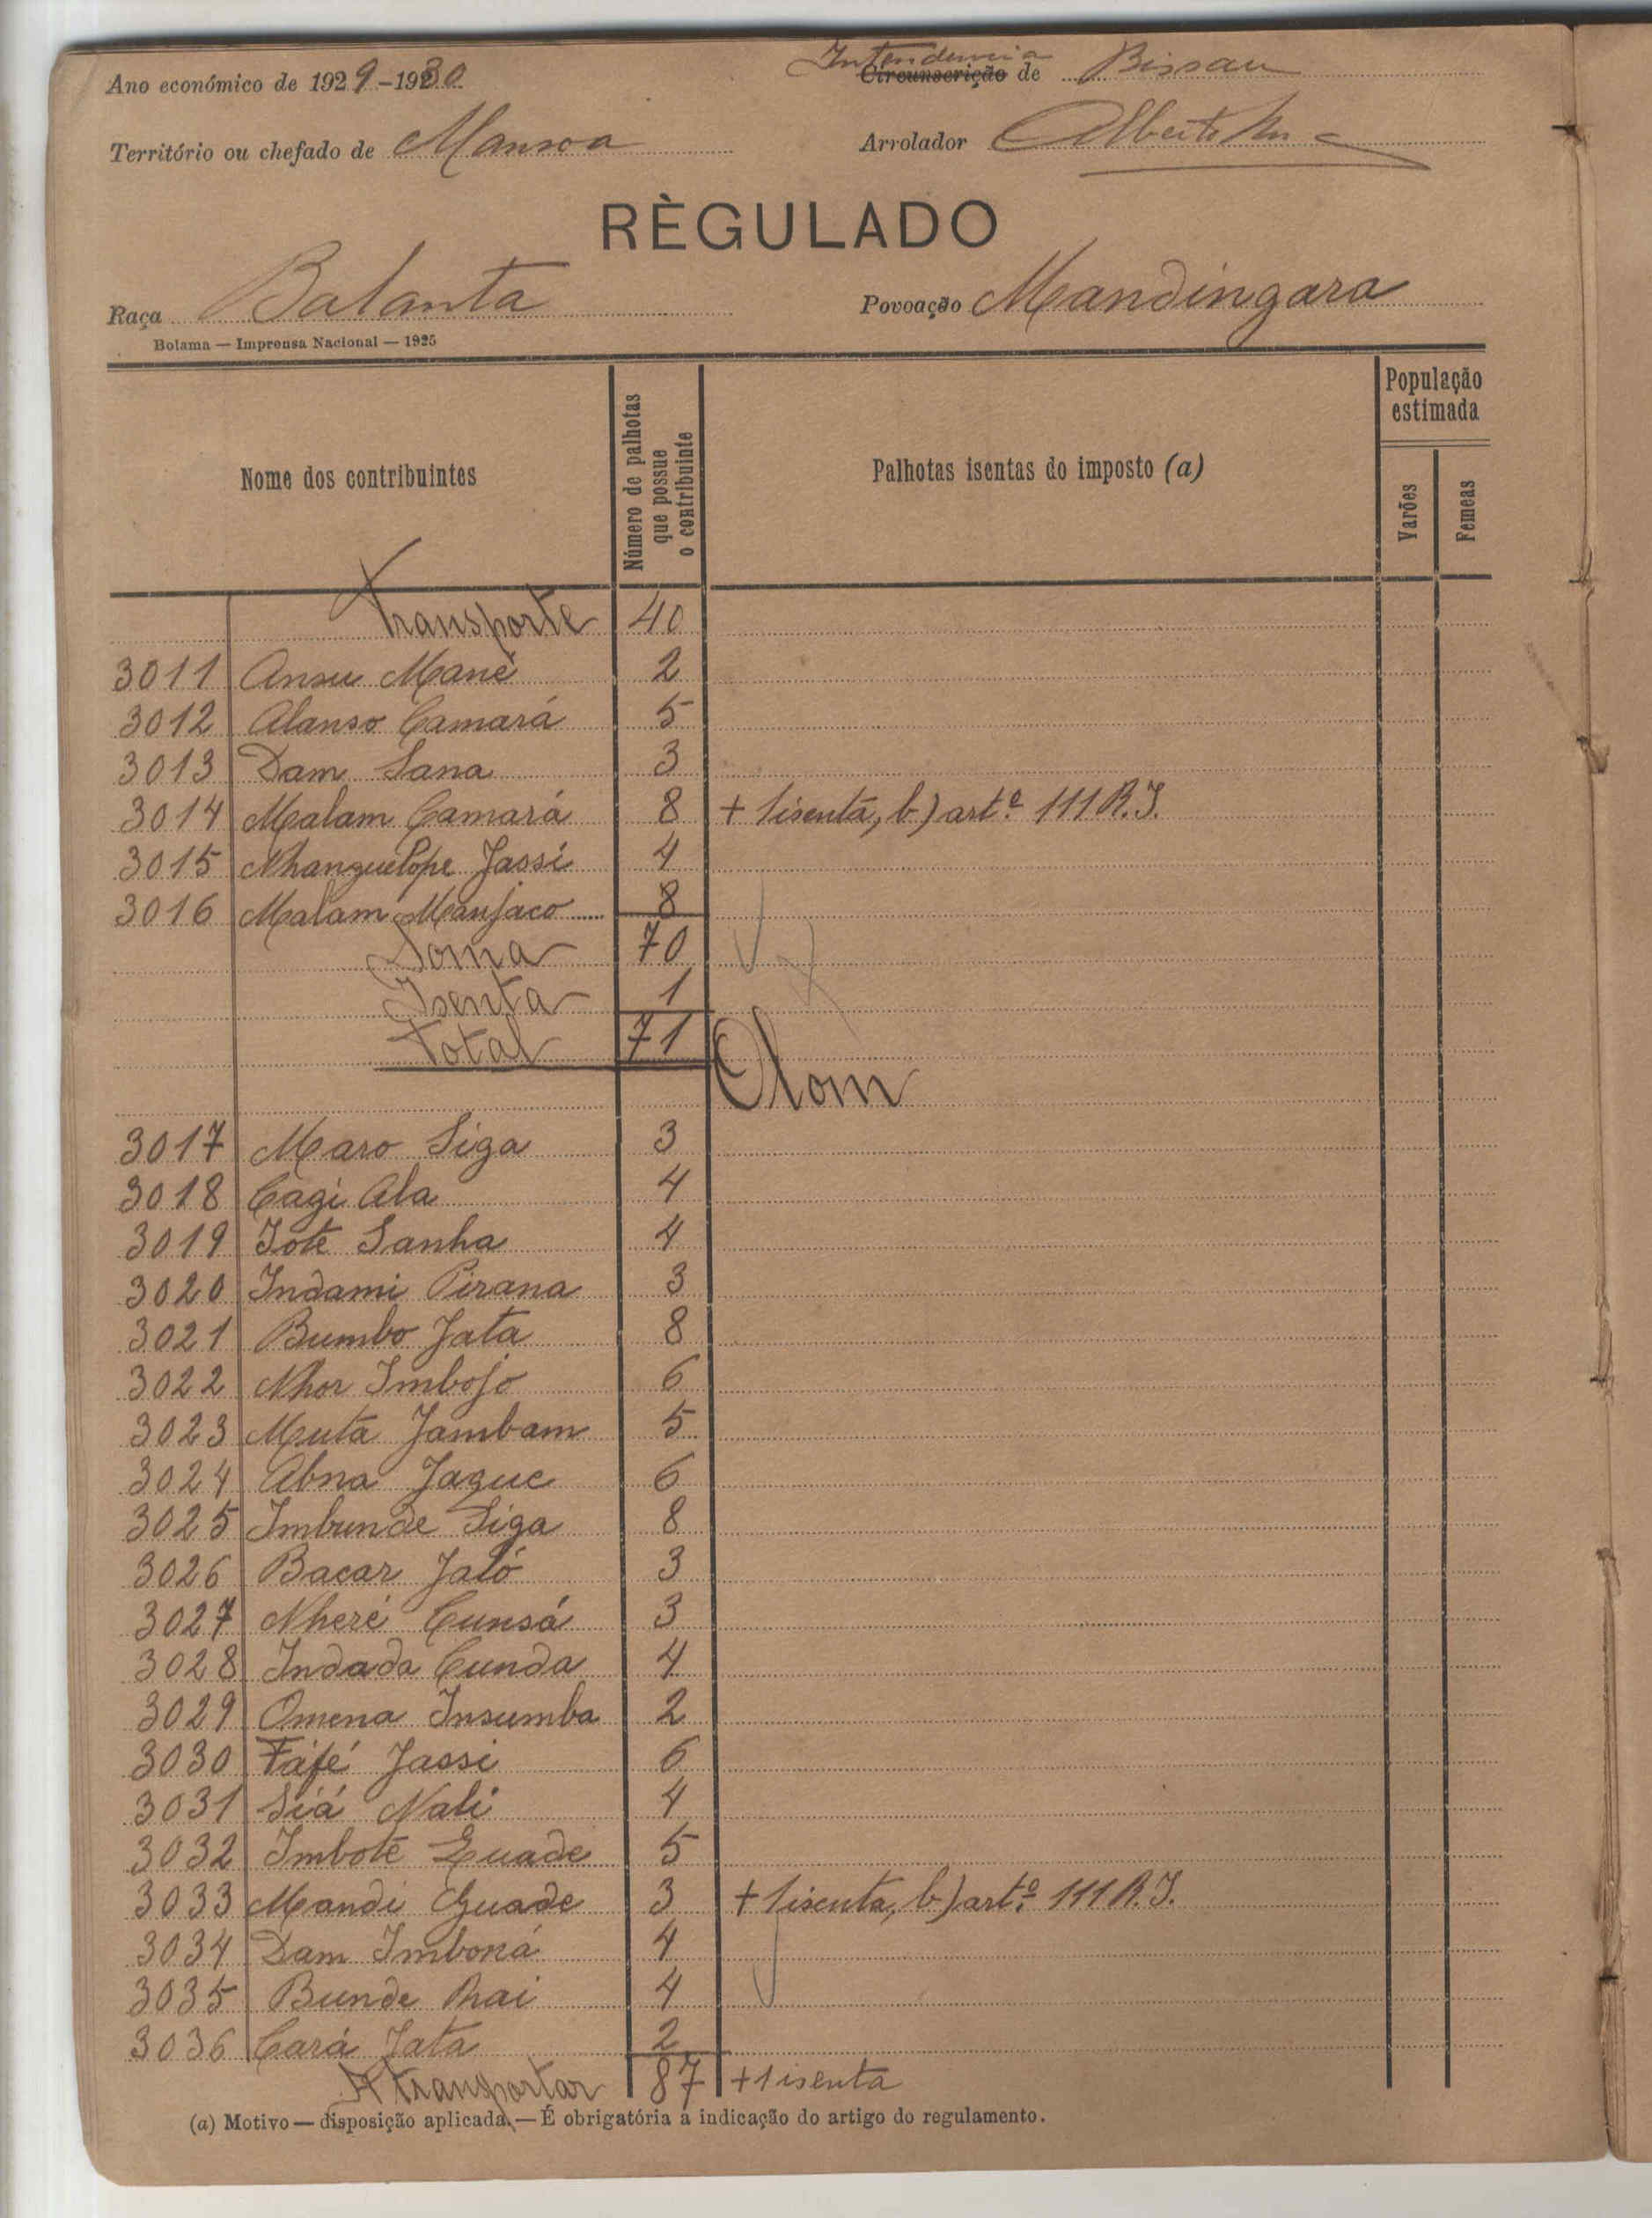 Ano económico de 1929-1930 Intendencia Circunscrição de Bissau
Território ou chefado de Mansoa Arrolador Alberto
RÈGULADO
Raça Balanta Povoação Mandingara
Bolama — Imprensa Nacional — 1925
Nome dos contribuintes
Número de palhotas que possue o contribuinte
Palhotas isentas do imposto (a)
População estimada
Varões
Femeas
Transporte 40
3011 Ansu Mané 2
3012 Alanso Camará 5
3013 Dam Sana 3
3014 Malam Camará 8 + 1 isenta, b) artº. 111 R.I.
3015 Nhanguelope Jassi 4
3016 Malam Manjaco 8
Soma 70
Isenta 1
Total 71
Olom
3017 Maro Siga 3
3018 Cagi Ala 4
3019 Iote Sanha 4
3020 Indami Pirana 3
3021 Bumbo Jata 8
3022 Nhor Imbojo 6
3023 Muta Jambam 5
3024 Abna Jague 6
3025 Imbunde Siga 8
3026 Bacar Jaló 3
3027 Nheré Cunsá 3
3028 Indada Cunda 4
3029 Omena Insumba 2
3030 Fáfé Jassi 6
3031 Siá Nali 4
3032 Imbote Guade 5
3033 Mandi Guade 3 + 1 isenta, b) artº. 111 R.I.
3034 Dam Imboná 4
3035 Bunde Nai 4
3036 Cará Jata 2
A transportar 87 + 1 isenta
(a) Motivo — disposição aplicada. — É obrigatória a indicação do artigo do regulamento.